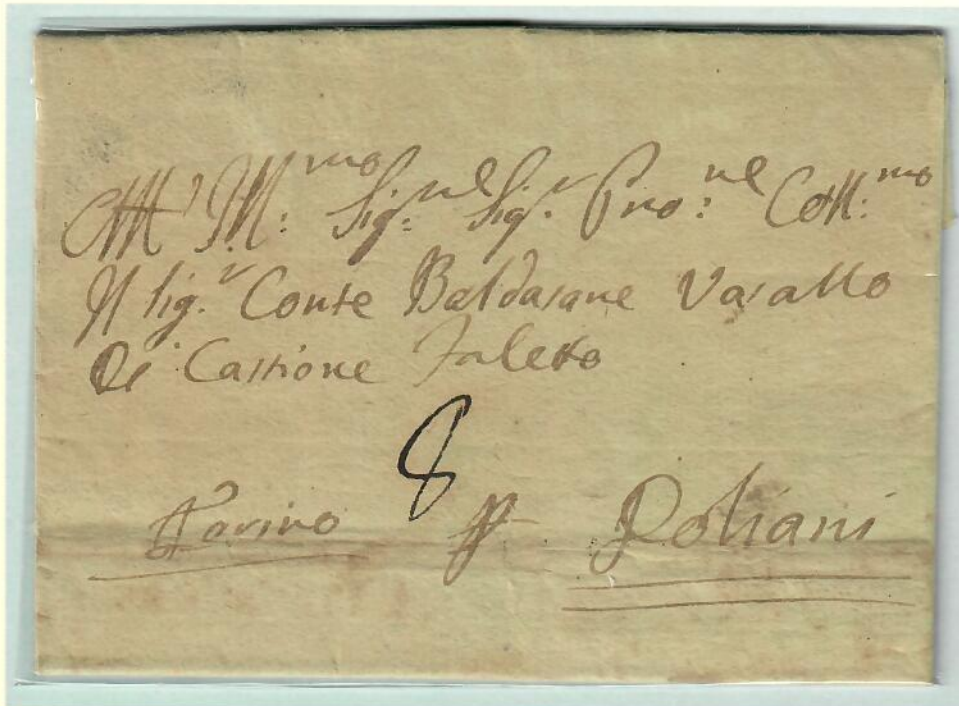 All' Ill:mo Sig:re Sig.r Pro:ne Coll:mo
Il Sig.r Conte Baldasare Vasallo
Di Castione Faletto
8
Torino p Doliani